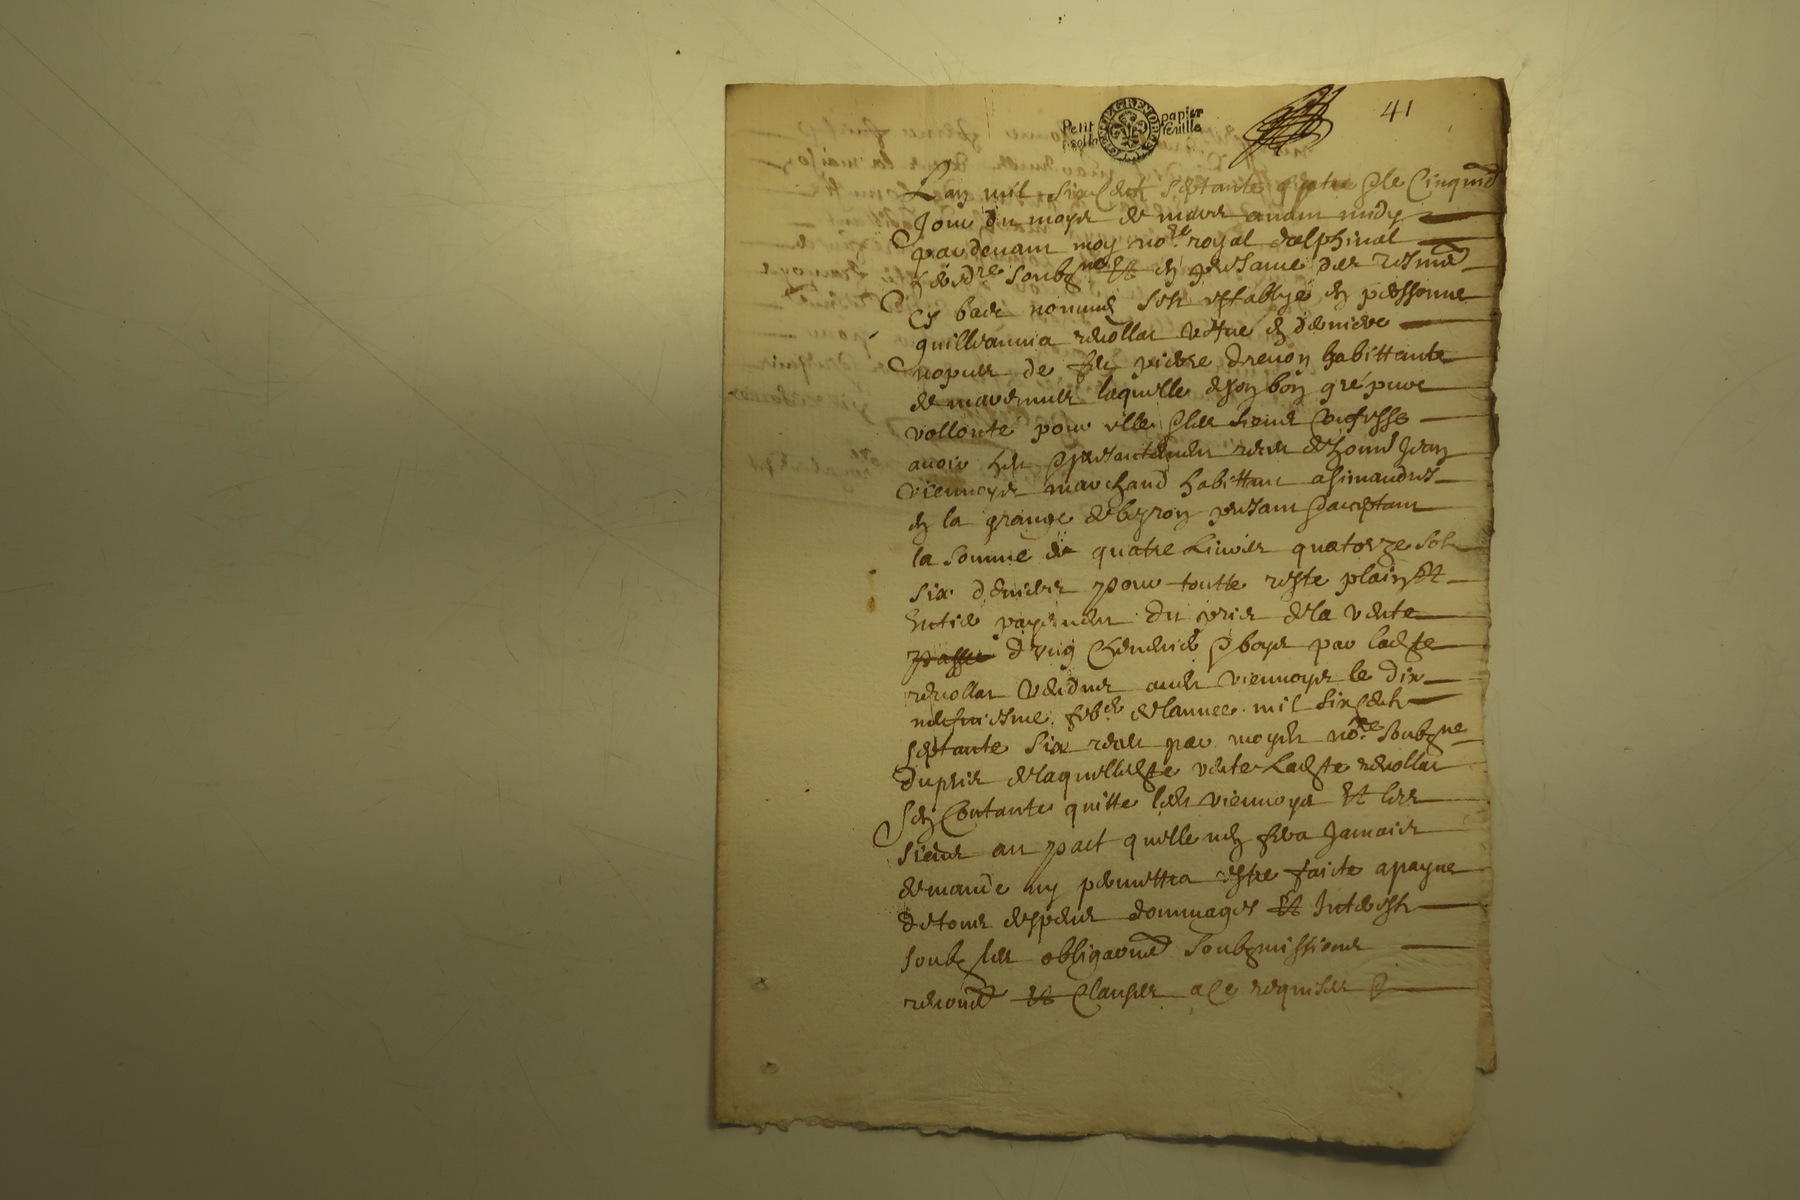 Petit papier
1 sol la feuille
41
Lan mil six cent septante quatre & le cinquie
Jour du moys de mars avant midy
pardevant moy no.re royal delphinal
soubzne et en presance des tesmd
Cy bas nommes sest establye en personne
guilleauma revollat vefve en derniere
nopces de feu pierre drevon habittante
de laquelle de son bon gré pure
vollonté pour elle & les siens confesse
avoir heu & presantement receu de hond Jean
viennoys marchand habittant a simandres
en la grange de byron presant & aceptant
la somme de quatre Livres quatorze sols
six deniers pour toutte reste plain et
Entier payement du prix de la vente
passee dung & boys par ladte
revollat vendue audt viennoys le dix
febr de lannee mil six cents
septante six receu par moydt no.re soubzne
du prix de laquelledte vente Ladte revollat
sen contante quitte ledt viennoys et les
siens au pact quelle nen fera Jamais
demande ny permettra estre faicte a payne
de tous despens dommages et Interests
soubz les obliga soubzmissions
renond et clauses a ce requises &